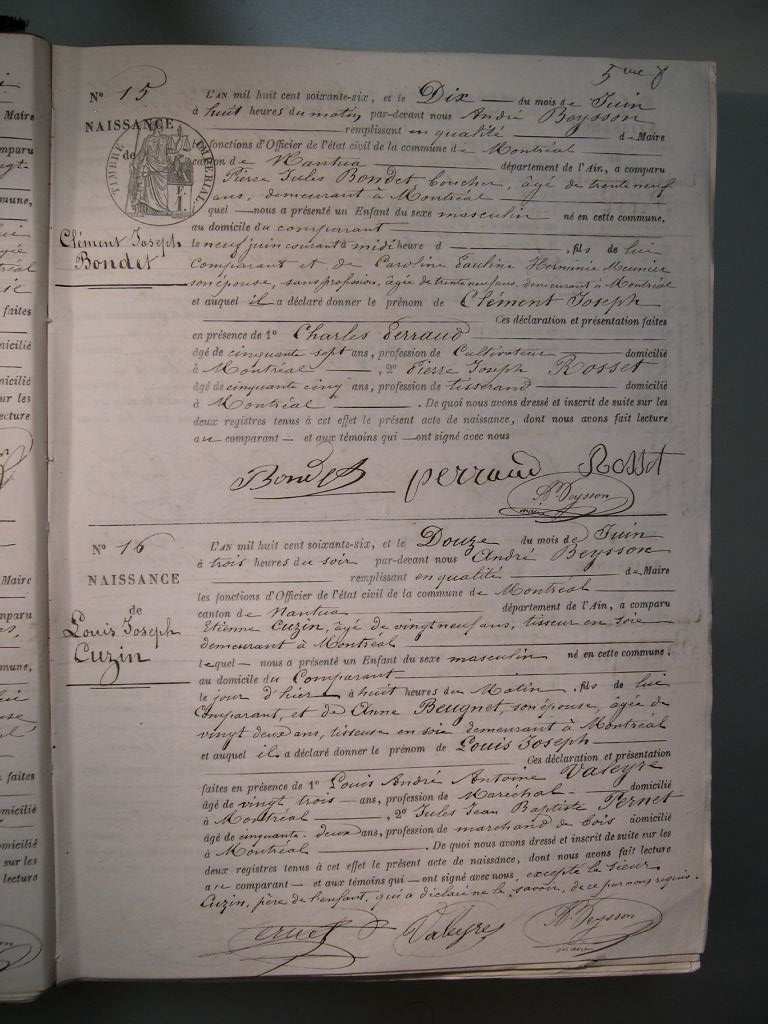 5me f
N° 15
NAISSANCE
de
TIMBRE IMPERIAL
Clément Joseph
Bondet
L'AN mil huit cent soixante-six, et le Dix du mois de Juin
à huit heures du matin par-devant nous André Beysson
remplissant en qualité de Maire
les fonctions d'Officier de l'état civil de la commune de Montréal
canton de Nantua département de l'Ain, a comparu
Pierre Jules Bondet, âgé de trente neuf
ans, demeurant à Montréal
quel nous a présenté un Enfant du sexe masculin né en cette commune,
au domicile du comparant
le neuf juin courant à midi heure d , fils de lui
comparant et de Caroline Pauline Herminie Meunier
son épouse, sans profession, âgée de trente neuf ans, demeurant à Montréal
et auquel il a déclaré donner le prénom de Clément Joseph
Ces déclaration et présentation faites
en présence de 1° Charles Perraud
âgé de cinquante sept ans, profession de Cultivateur domicilié
à Montréal , 2° Pierre Joseph Rosset
âgé de cinquante cinq ans, profession de tisserand domicilié
à Montréal . De quoi nous avons dressé et inscrit de suite sur les
deux registres tenus à cet effet le présent acte de naissance, dont nous avons fait lecture
au comparant et aux témoins qui ont signé avec nous
Bondet perraud Rosset
A Beysson
maire
N° 16
NAISSANCE
de
Louis Joseph
Cuzin
L'AN mil huit cent soixante-six, et le Douze du mois de Juin
à trois heures du soir par-devant nous André Beysson
remplissant en qualité de Maire
les fonctions d'Officier de l'état civil de la commune de Montréal
canton de Nantua département de l'Ain, a comparu
Etienne Cuzin, âgé de vingt neuf ans, tisseur en soie
demeurant à Montréal
lequel nous a présenté un Enfant du sexe masculin né en cette commune,
au domicile du Comparant
le jour d'hier à huit heures du Matin , fils de lui
Comparant, et de Anne Beugnet, son épouse, âgée de
vingt deux ans, tisseuse en soie demeurant à Montréal
et auquel il a déclaré donner le prénom de Louis Joseph
Ces déclaration et présentation
faites en présence de 1° Louis André Antoine Valeyre
âgé de vingt trois ans, profession de Maréchal domicilié
à Montréal , 2° Jules Jean Baptiste Ternet
âgé de cinquante-deux ans, profession de marchand de bois domicilié
à Montréal . De quoi nous avons dressé et inscrit de suite sur les
deux registres tenus à cet effet le présent acte de naissance, dont nous avons fait lecture
au comparant et aux témoins qui ont signé avec nous, excepté le sieur
Cuzin, père de l'enfant, qui a déclaré ne le savoir, de ce par nous requis.
Valeyre A Beysson
maire